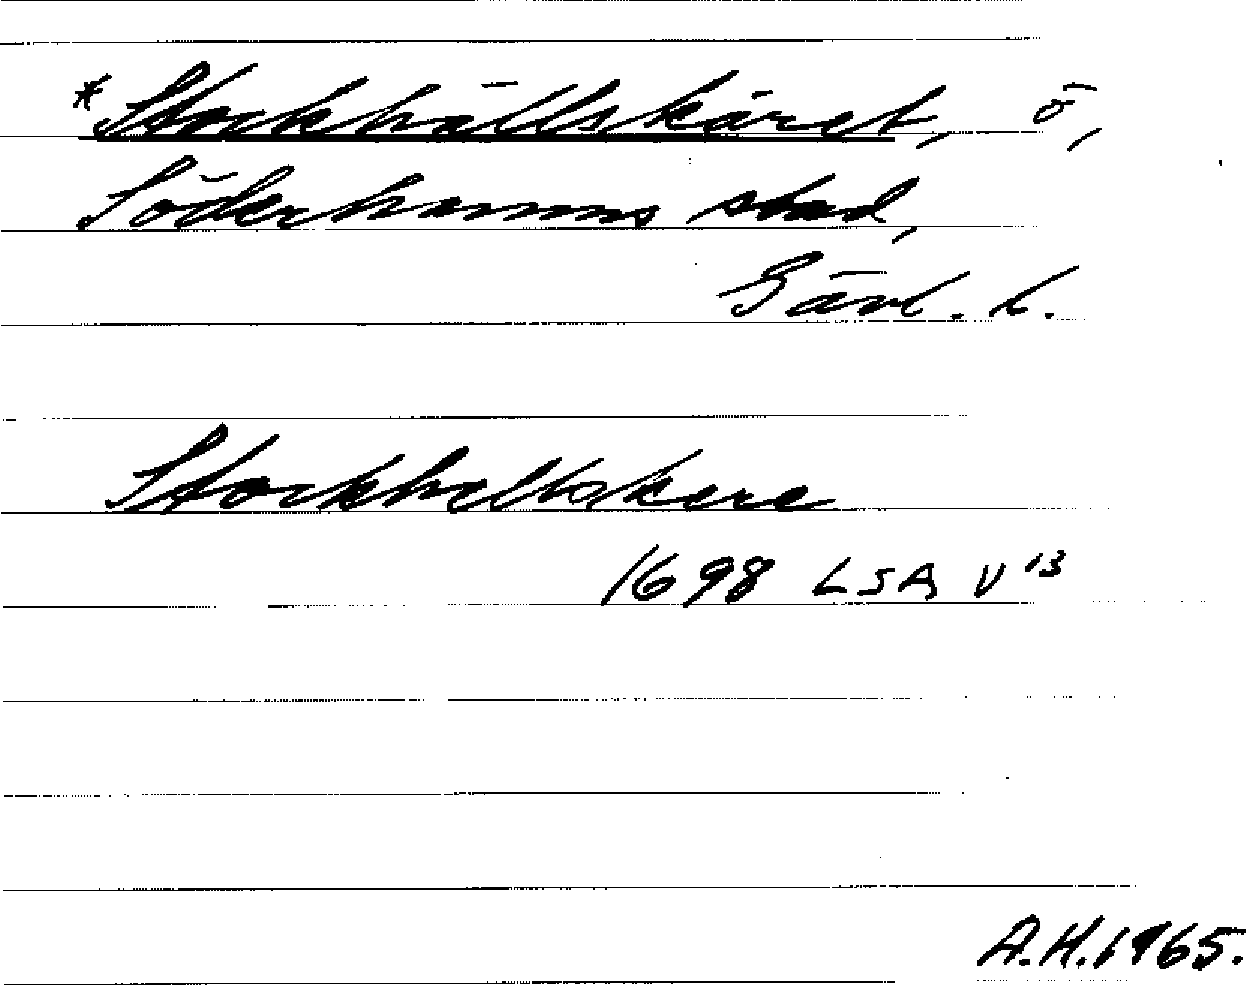 *Stockhällskäret, ö,
Söderhamns stad,
Gävl. l.
Stockhellskere
1698 LSA V 13
A.H.1965.